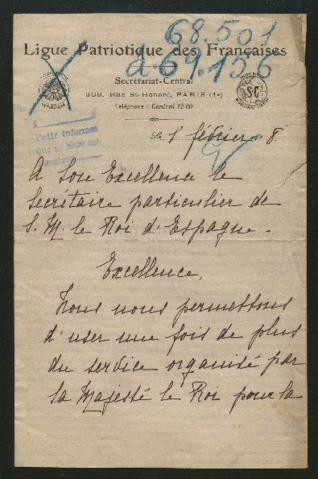 68.501
a 69.156
Ligue Patriotique des Françaises
Secrétariat-Central
368, Rue St-Honoré, PARIS (1er)
Téléphone : Central
SC
février 8.
A Son Excellence le
Secrétaire particulier de
S. M. le Roi d'Espagne.
Excellence,
Nous nous permettons
d'user une fois de plus
du service organisé par
Sa Majesté le Roi pour la